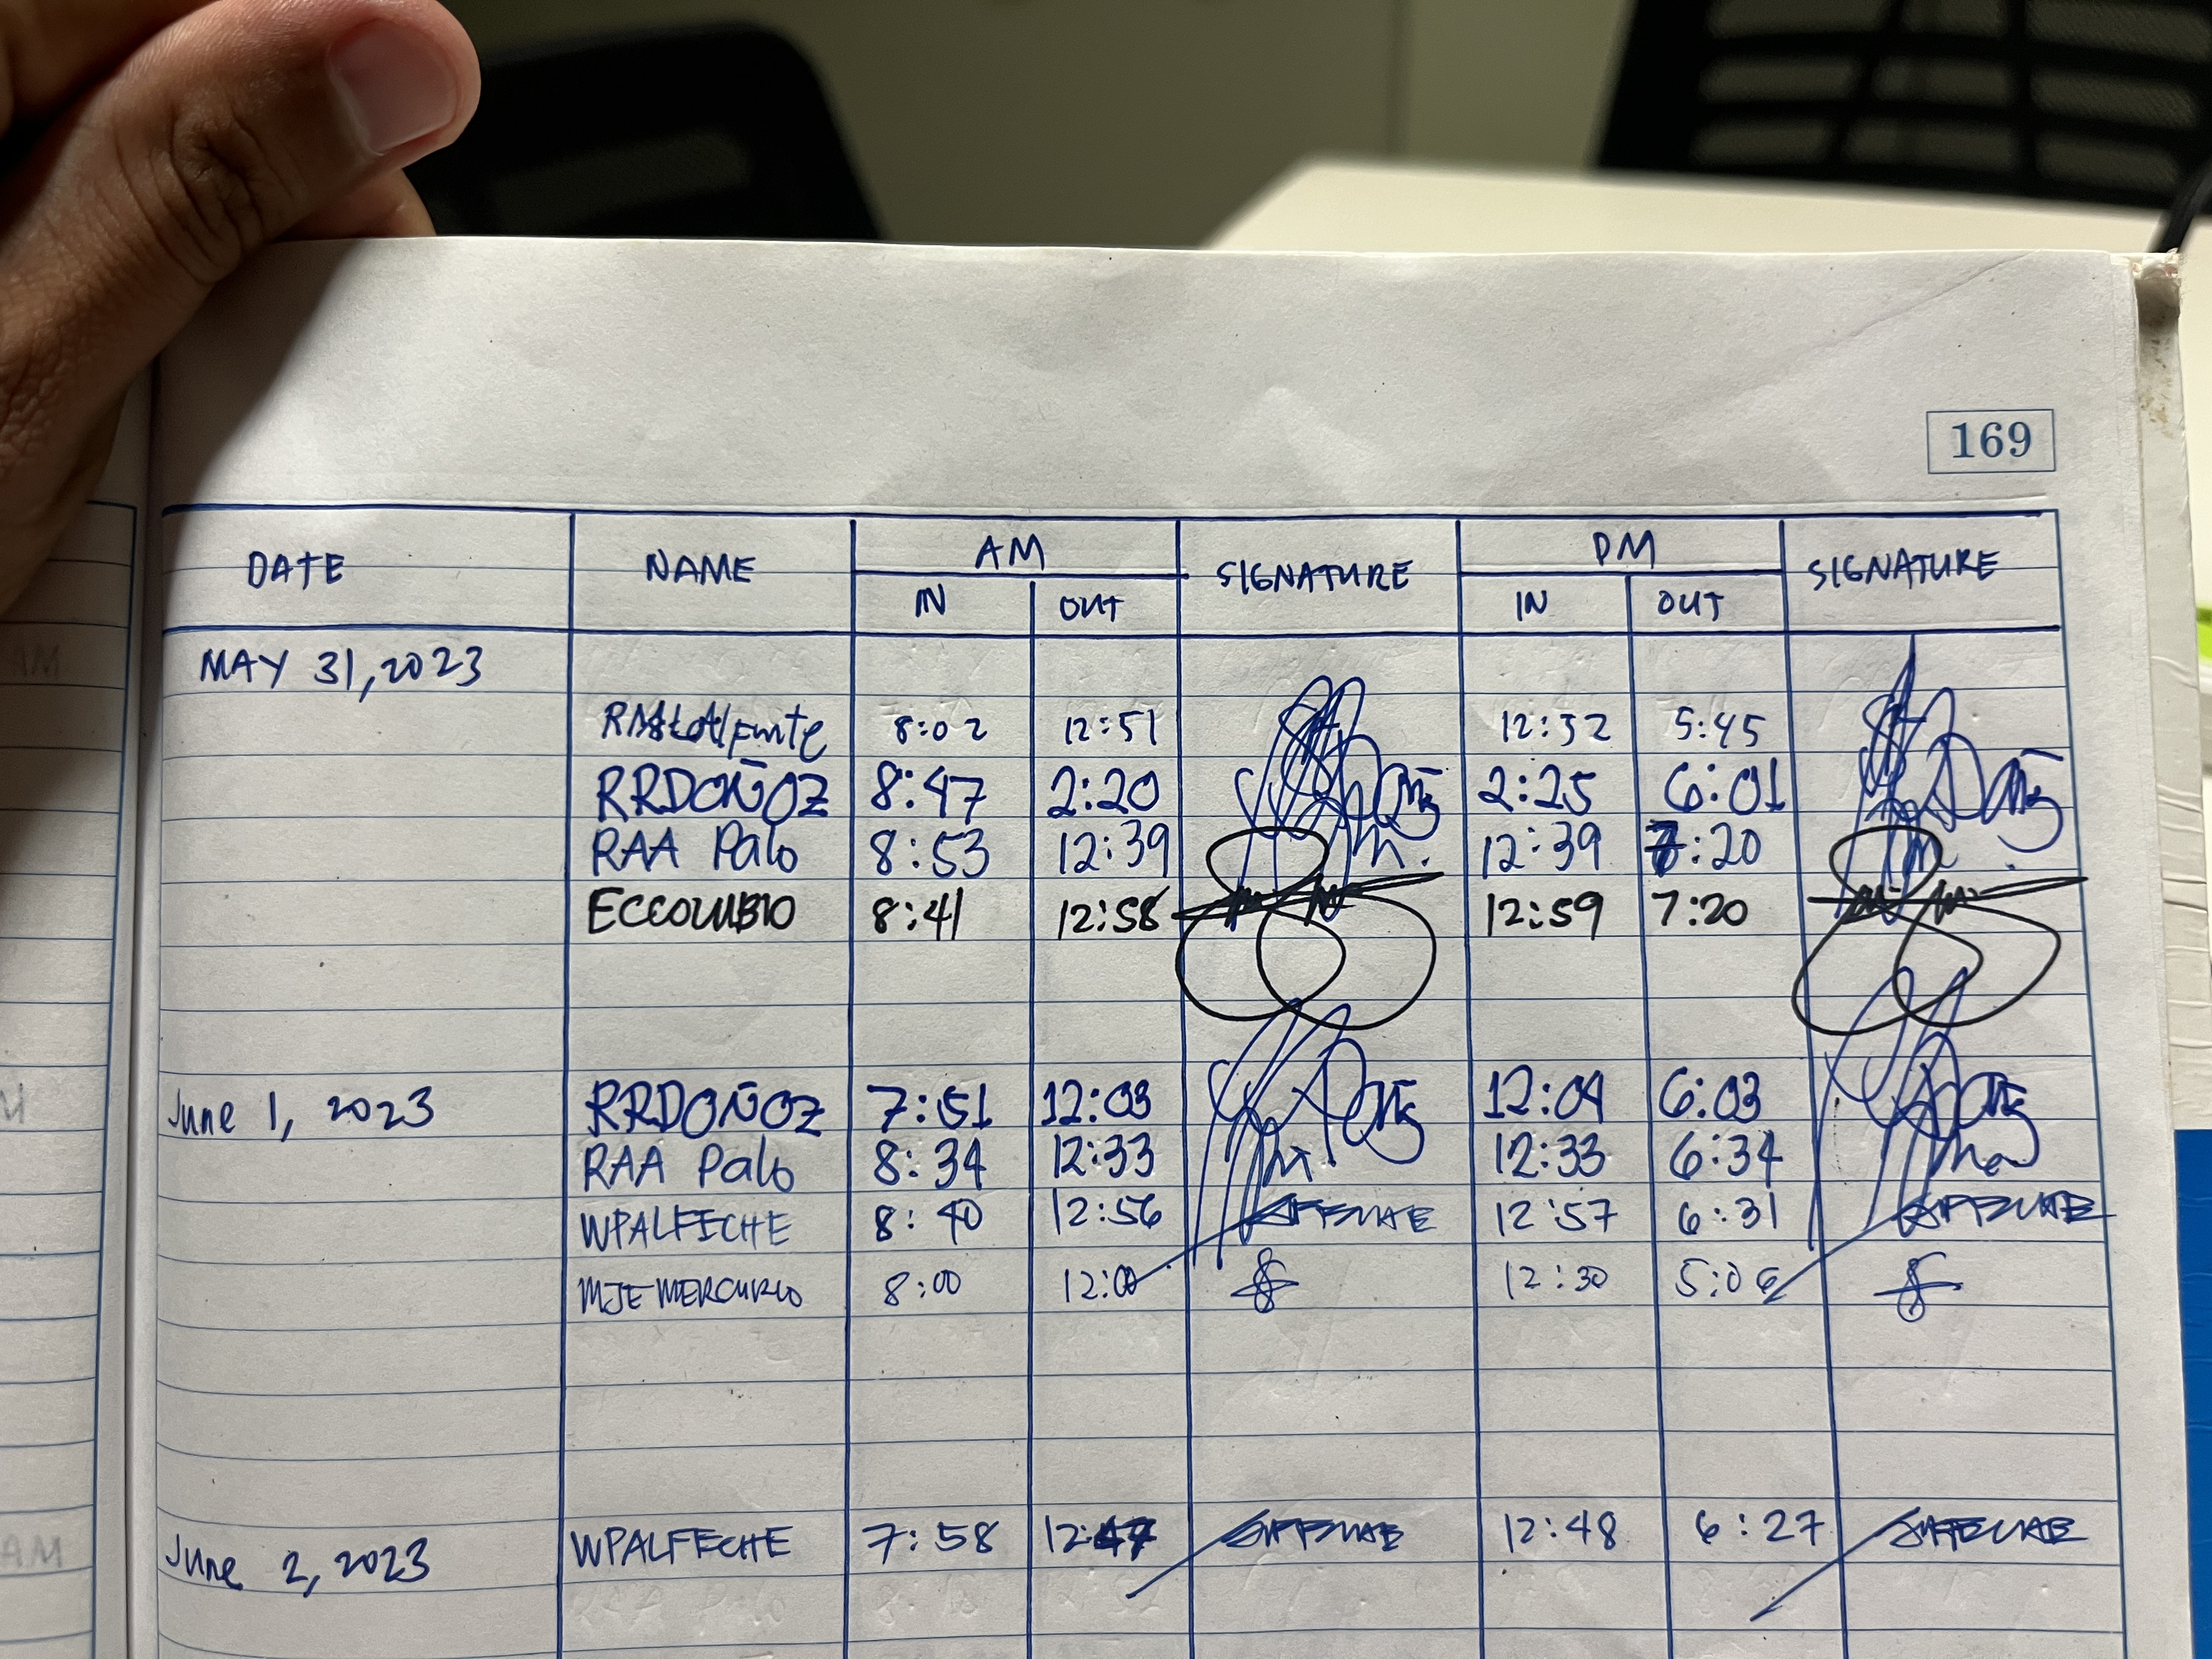 169
DATE NAME AM SIGNATURE PM SIGNATURE
IN OUT IN OUT
MAY 31, 2023
8:02 12:51 12:32 5:45
RRDOÑOZ 8:47 2:20 2:25 6:01
RAA Palo 8:53 12:39 12:39 7:20
ECCOLUBIO 8:41 12:58 12:59 7:20
June 1, 2023 RRDOÑOZ 7:51 12:03 12:04 6:03
RAA Palo 8:34 12:33 12:33 6:34
WPALFECHE 8:40 12:56 12:57 6:31
MJEMERCURIO 8:00 12:00 12:30 5:02
June 2, 2023 WPALFECHE 7:58 12:47 12:48 6:27